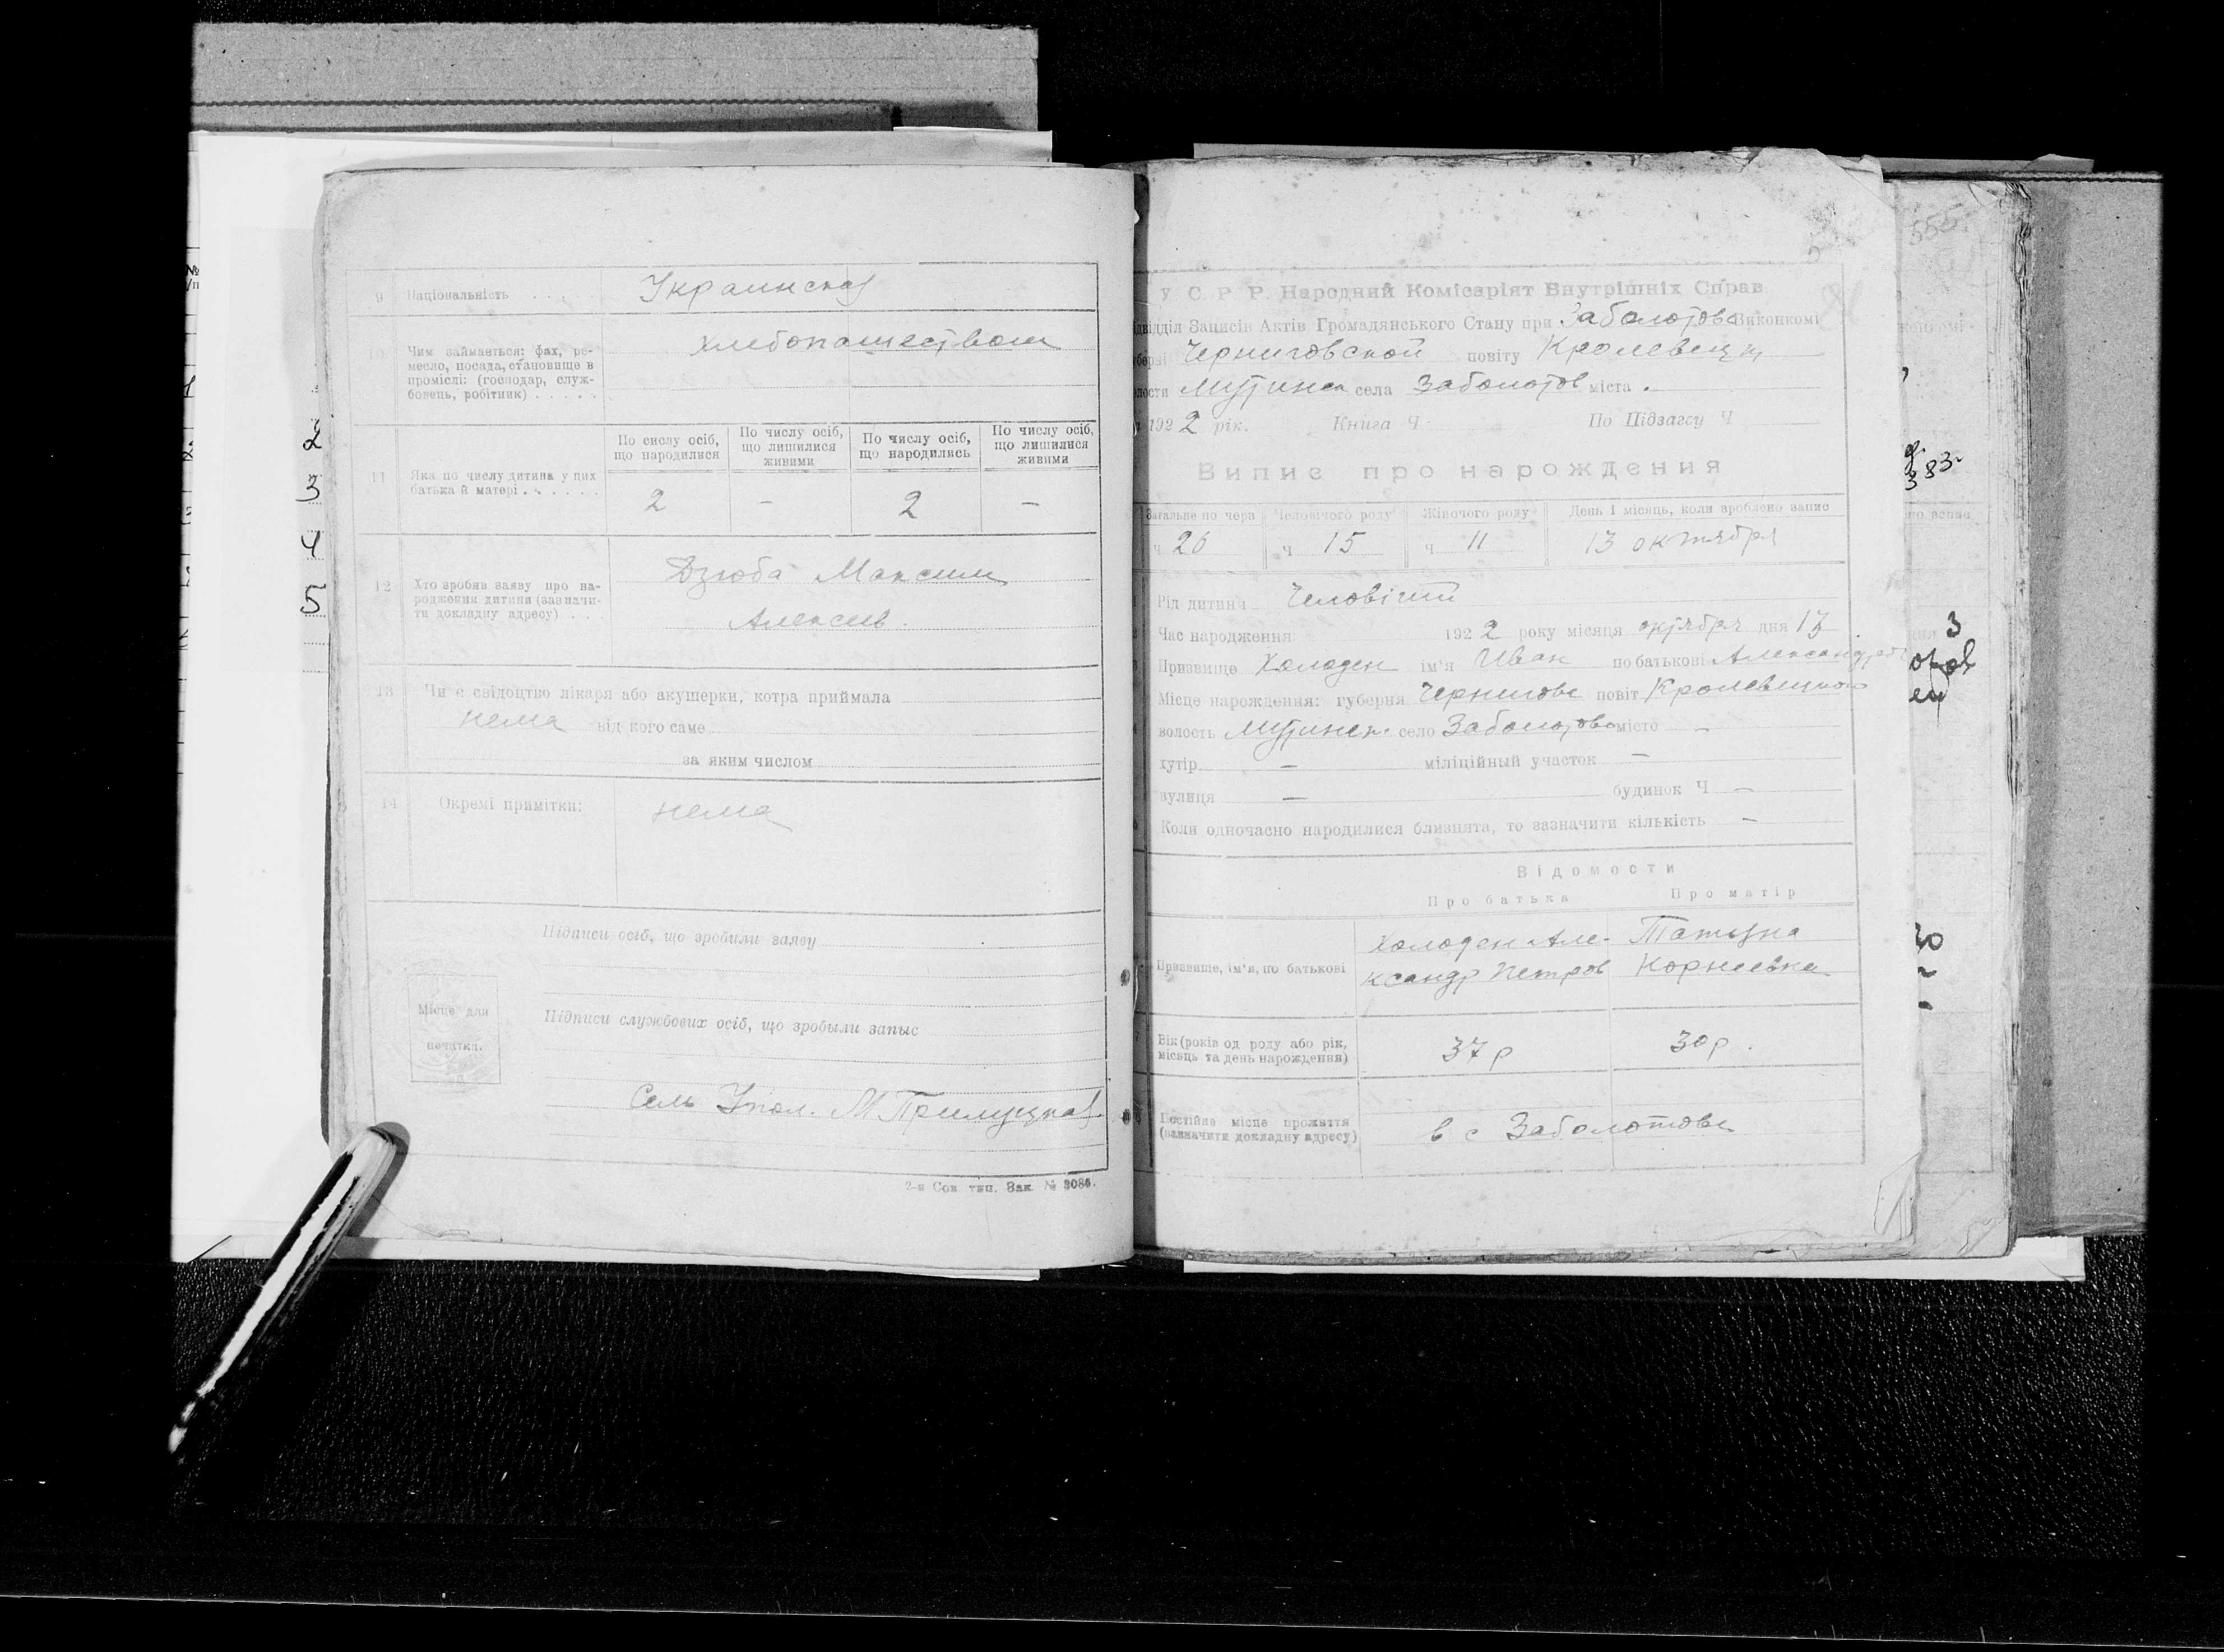 9 Національність Украинской
10 Чим займається: фах, ре-
месло, посада, становище в
промислі: (господар, служ-
бовець, робітник)
хлебопашеством
11 Яка по числу дитина у цих
батька й матері
По числу осіб, що народилися
По числу осіб, що лишилися живими
По числу осіб, що народились
По числу осіб, що лишилися живими
2 – 2 –
12 Хто зробив заяву про на-
родження дитини (зазначи-
ти докладну адресу)
Дзюба Максим
Алексеев.
13 Чи є свідоцтво лікаря або акушерки, котра приймала
нема від кого саме
за яким числом
14 Окремі примітки: нема
Підписи осіб, що зробили заяву
Місце для
печатки.
Підписи службових осіб, що зробыли запыс
Сель Упол. М Прилуцкая
2-я Сов. тип. Зак. № 3086.
У. С. Р. Р. Народний Комісаріят Внутрішніх Справ
Підвідділ Записів Актів Громадянського Стану при Заболотов Виконкомі
Черниговской повіту Кролевецк
Мутинск села Заболотов міста
192 2 рік. Книга Ч По Підзагсу Ч
Випис про народження
Загальне по черз Человічого роду Жіночого роду День і місяць, коли зроблено запис
ч 26 ч 15 ч 11 13 октября
Рід дитини Человічий
Час народження: 192 2 року місяця октября дня 13
Призвище Холоден ім'я Иван по батькові Александров
Місце нарождення: губерня Чернигове повіт Кролевецкого
волость Мутинск. село Заболотово місто –
хутір – міліційный участок –
вулиця – будинок Ч –
Коли одночасно народилися близнята, то зазначити кількість –
Відомости
Про батька Про матір
Призвище, ім'я, по батькові
Холоден Але-
ксандр Петров
Татьяна
Корнеевна
Вік (років од роду або рік,
місяць та день нарождення)
37 р 30 р.
Постійне місце прожиття
(зазначити докладну адресу)
в с Заболотове
555
2
3
4
5